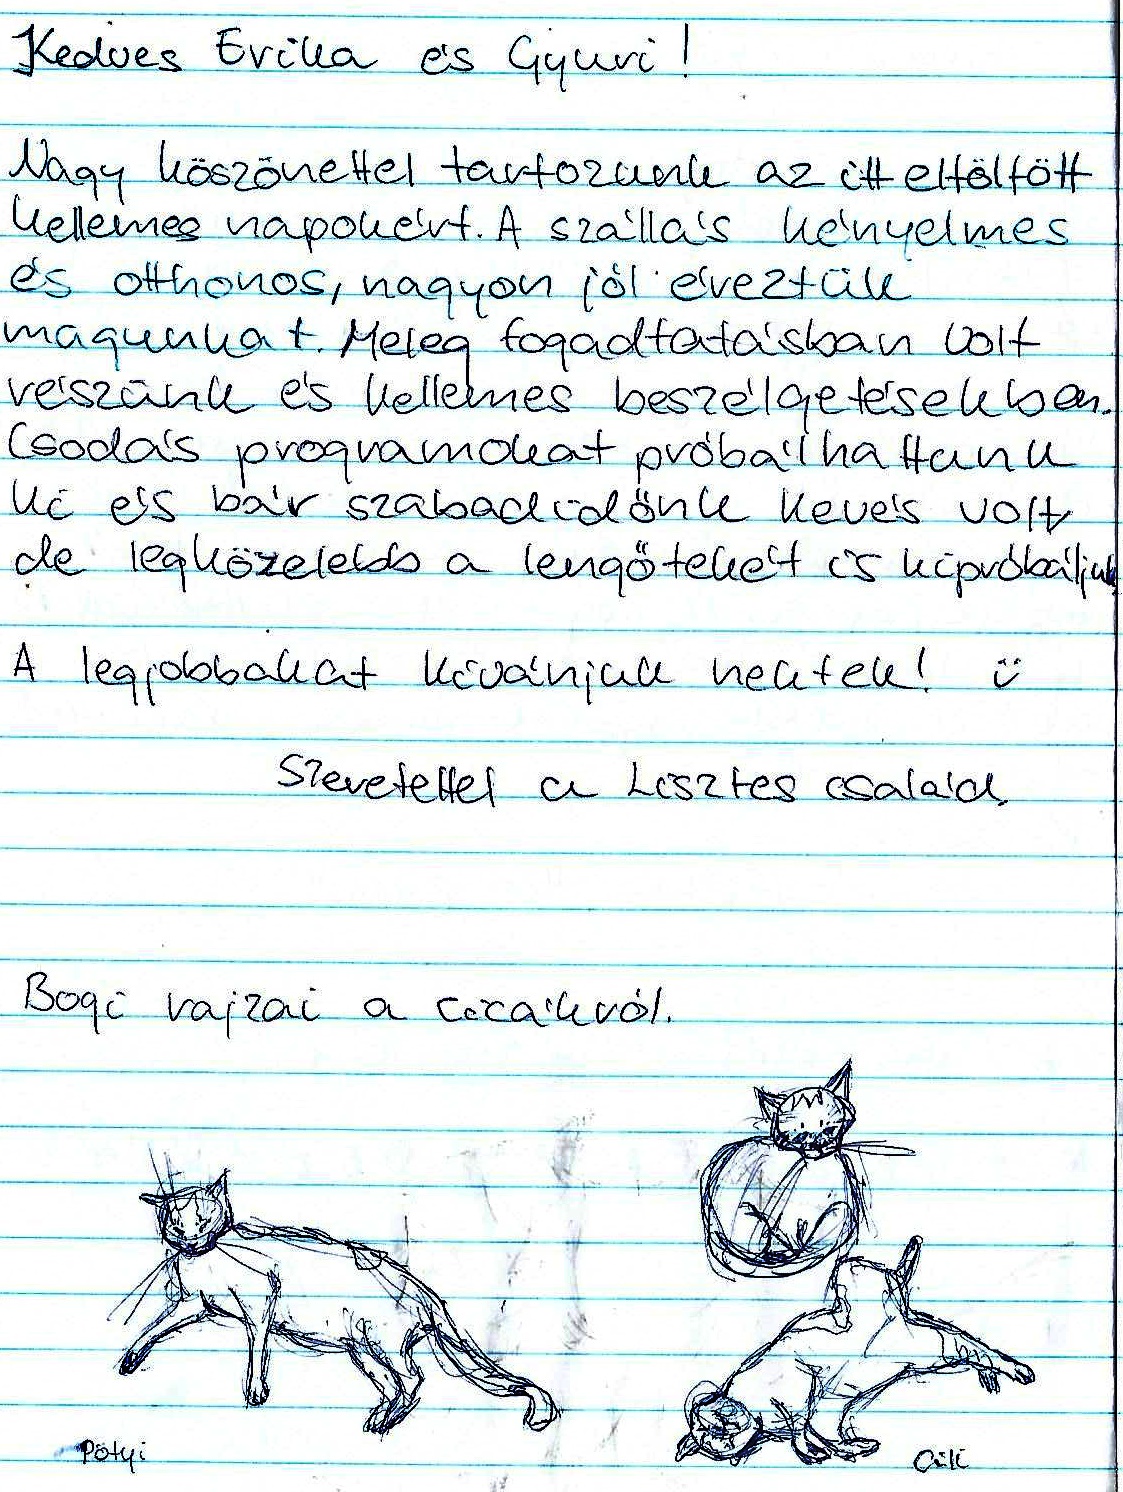 Kedves Erika és Gyuri!
Nagy köszönettel tartozunk az itt eltöltött
kellemes napokért. A szállás kényelmes
és otthonos, nagyon jól éreztük
magunkat. Meleg fogadtatásban volt
részünk és kellemes beszélgetésekben.
Csodás programokat próbálhattunk
ki és bár szabadidőnk kevés volt
de legközelebb a lengőtekét is kipróbáljuk
A legjobbakat kívánjuk nektek! ü
Szeretettel a Lisztes család.
Bogi rajzai a cicákról.
Pötyi
Cili